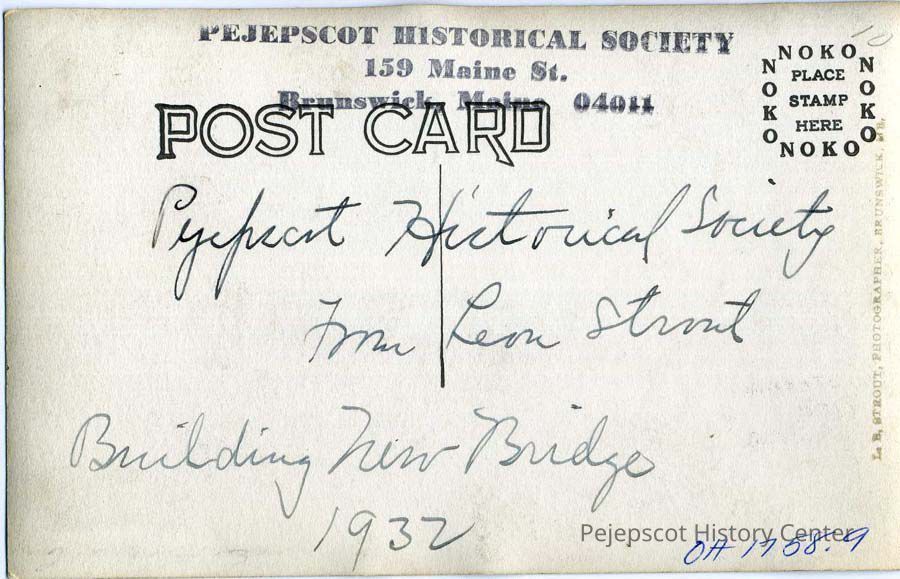 PEJEPSCOT HISTORICAL SOCIETY
159 Maine St.
Brunswick, Maine 04011
POST CARD
NOKO
NOKO
PLACE
STAMP
HERE
NOKO
NOKO
10
Pejepscot Historical Society
From Leon Strout
Building New Bridge
1932
L. B. STROUT, PHOTOGRAPHER, BRUNSWICK, ME.
Pejepscot History Center
OH 1758.9